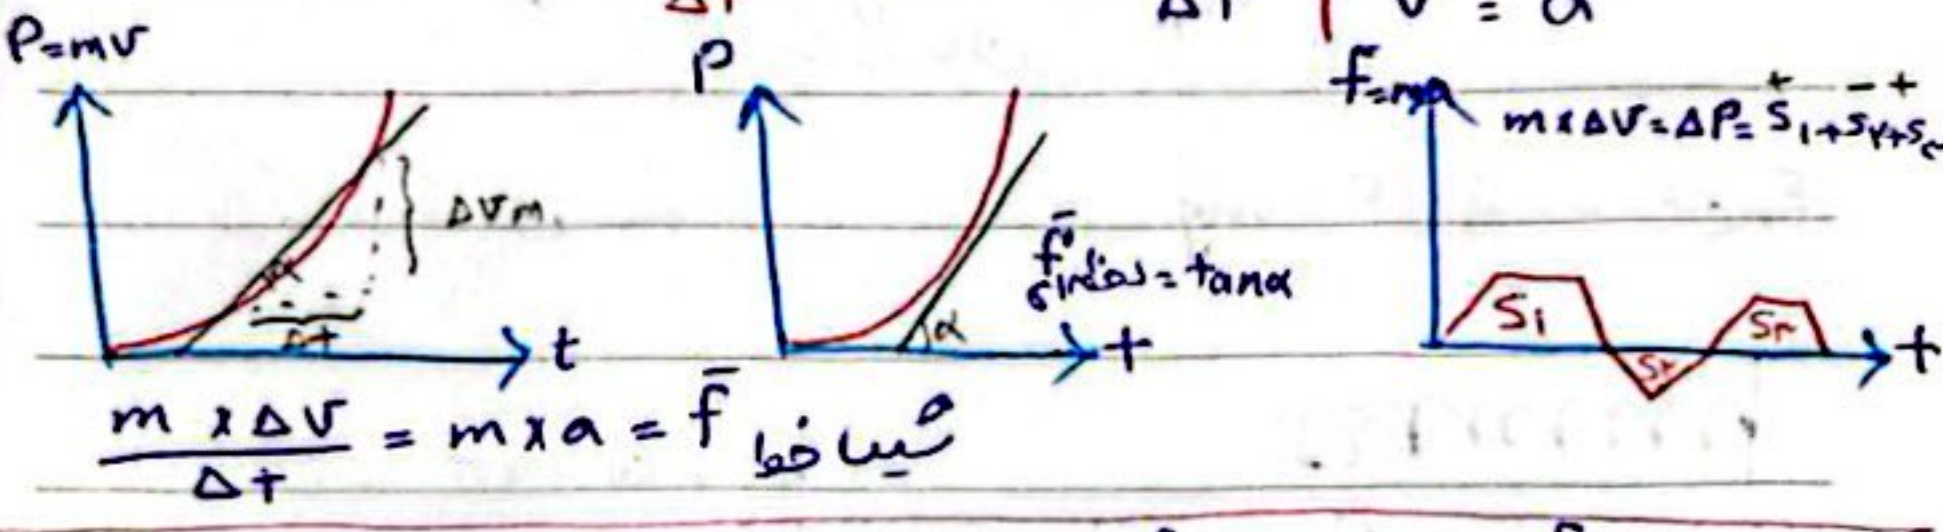 Δt Δt v = a
P=mv
ΔVm.
α
Δt
t
m x Δv / Δt = m x a = f̄ شیب خط
P
f̄ لحظه‌ای = tanα
α
t
f=ma
+ - +
m x Δv = ΔP = S۱+S۲+S۳
S۱
S۲
S۳
t